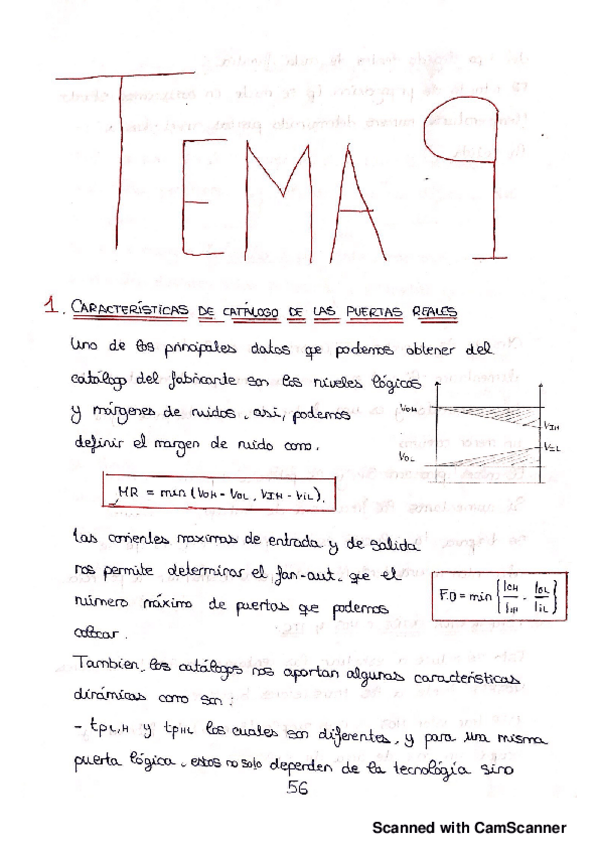 TEMA 9
1. CARACTERÍSTICAS DE CATÁLOGO DE LAS PUERTAS REALES
Uno de los principales datos que podemos obtener del
catálogo del fabricante son los niveles lógicos
y márgenes de ruidos, así, podemos
definir el margen de ruido como.
VOH
VIH
VIL
VOL
MR = min (VOH - VOL, VIH - ViL).
Las corrientes maximas de entrada y de salida
nos permite determinar el fan-aut. que el
número máximo de puertas que podemos
colocar.
F.O = min { IOH / IIH , IOL / IiL }
Tambien, los catálogos nos aportan algunas características
dinámicas como son:
- tpL,H y tpHL los cuales son diferentes, y para una misma
puerta lógica, estos no solo dependen de la tecnológia sino
56
Scanned with CamScanner